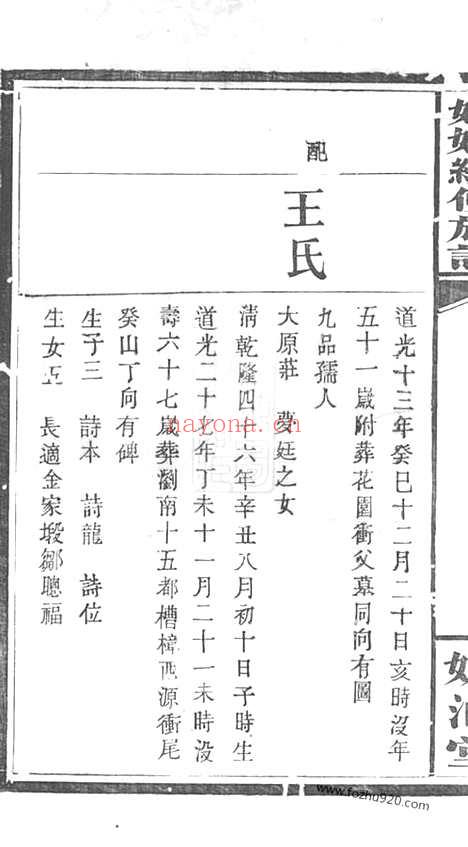 配
王氏
道光十三年癸巳十二月二十日亥時沒年
五十一嵗附葬花園衝父墓同向有圖
九品孺人
大原莊 夢廷之女
清乾隆四十六年辛丑八月初十日子時生
道光二十七年丁未十一月二十一未時没
壽六十七嵗葬瀏南十五都槽樟西源衝尾
癸山丁向有碑
生子三 詩本 詩龍 詩位
生女五 長適金家塅鄒聰福
nayona.cn
www.fozhu920.com